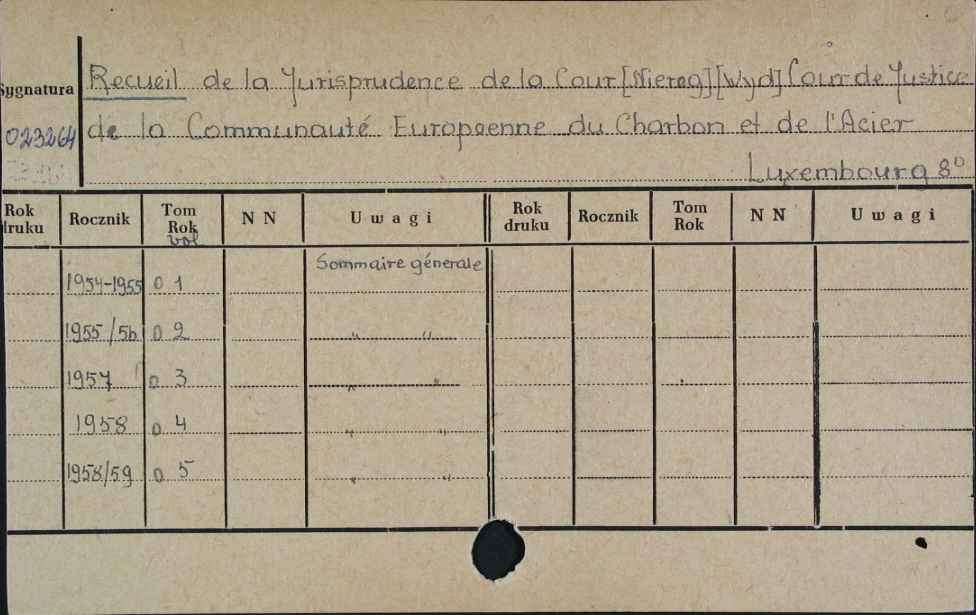 Sygnatura
023264
Recueil de la Jurisprudence de la Cour [Niereg] [Wyd] Cour de Justice
de la Communauté Européenne du Charbon et de l'Acier
Luxembourg 8°
Rok druku Rocznik Tom Rok vol NN Uwagi Rok druku Rocznik Tom Rok NN Uwagi
Sommaire génerale
1954-1955 o 1
1955/56 o 2 " "
1957 o 3 " "
1958 o 4 " "
1958/59 o 5 " "